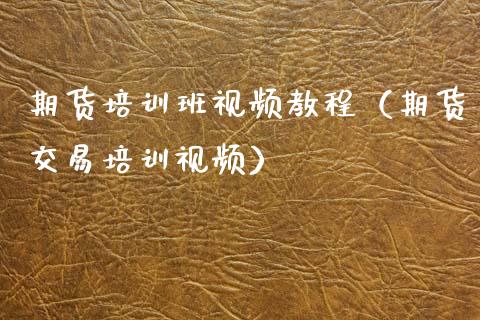 期货培训班视频教程（期货
交易培训视频）